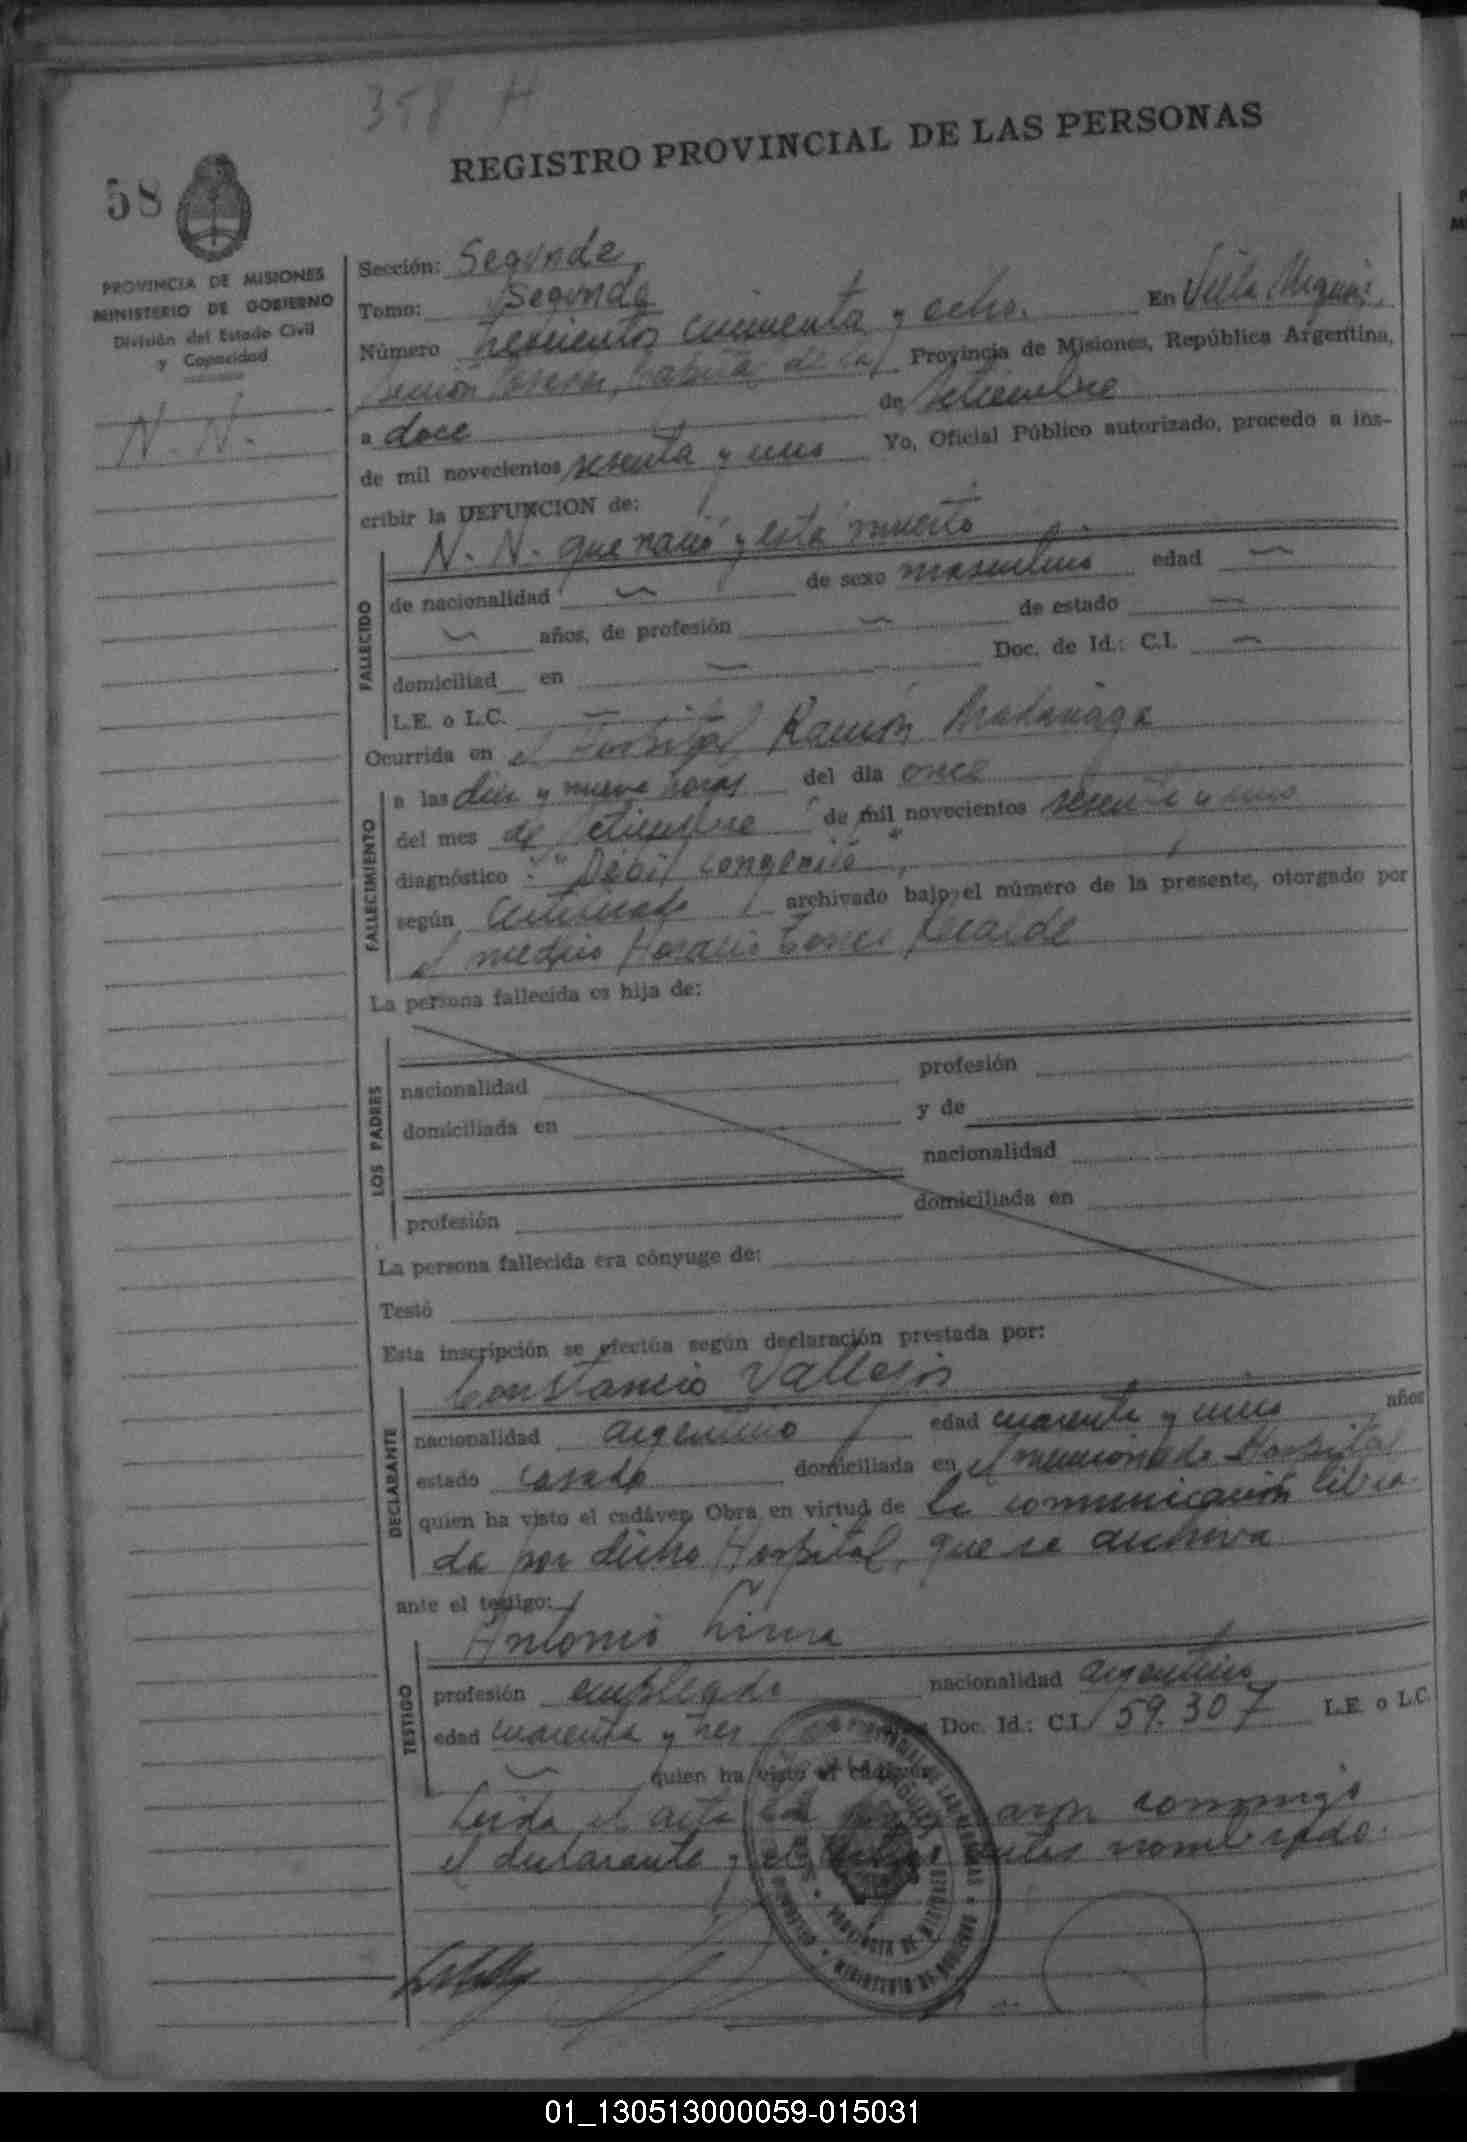 358 H
REGISTRO PROVINCIAL DE LAS PERSONAS
58
PROVINCIA DE MISIONES
MINISTERIO DE GOBIERNO
División del Estado Civil
y Capacidad
N. N.
Sección: Segunda
Tomo: Segundo
Número trescientos cincuenta y ocho. En Villa
Provincia de Misiones, República Argentina,
a doce de setiembre
de mil novecientos sesenta y uno Yo, Oficial Público autorizado, procedo a ins-
cribir la DEFUNCION de:
N. N. que nació y está muerto
FALLECIDO
de nacionalidad de sexo masculino edad
años, de profesión de estado
domiciliad en Doc. de Id.: C.I.
L.E. o L.C.
Ocurrida en el Hospital Ramón Madariaga
FALLECIMIENTO
a las diez y nueve horas del día once
del mes de setiembre de mil novecientos sesenta y uno
diagnóstico : "Débil congénito",
según certificado archivado bajo el número de la presente, otorgado por
el médico Horacio Torres
La persona fallecida es hija de:
LOS PADRES
nacionalidad profesión
domiciliada en y de
nacionalidad
profesión domiciliada en
La persona fallecida era cónyuge de:
Testó
Esta inscripción se efectúa según declaración prestada por:
Constancio Vallejos
DECLARANTE
nacionalidad argentino edad cuarenta y uno años
estado casado domiciliada en el mencionado Hospital
quien ha visto el cadáver. Obra en virtud de la comunicación libra
da por dicho Hospital, que se archiva
ante el testigo:
Antonio
TESTIGO
profesión empleado nacionalidad argentino
edad cuarenta y tres Doc. Id.: C.I. 59.307 L.E. o L.C.
quien ha visto el cadáver
Leída el acta la conmigo
el declarante y el testigo antes nombrado.
PROVINCIA DE MISIONES
MINISTERIO DE GOBIERNO
01_130513000059-015031